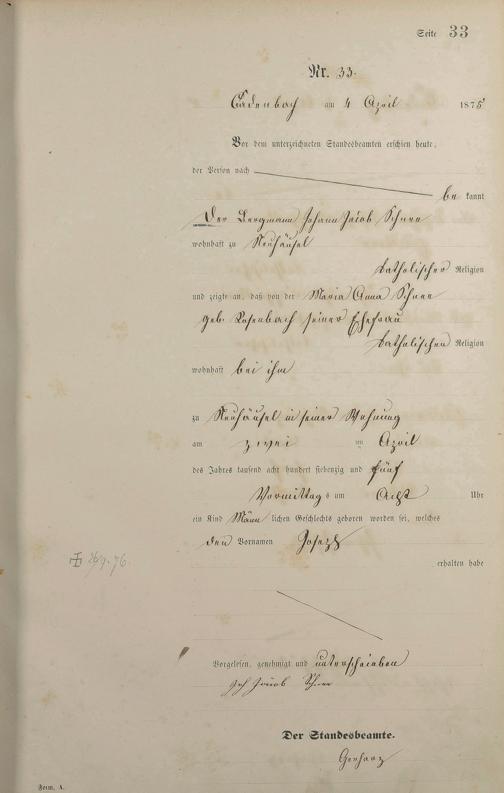 Seite 33
Nr. 33.
Cadenbach am 4 April 1875
Vor dem unterzeichneten Standesbeamten erschien heute,
der Person nach
be kannt
Der Bergmann Johann Jacob Schnee
wohnhaft zu Neuhäusel
katholischer Religion
und zeigte an, daß von der Maria Anna Schnee
geb. Rosenbach seiner Ehefrau
katholischen Religion
wohnhaft bei ihm
zu Neuhäusel in seiner Wohnung
am zwei ten April
des Jahres tausend acht hundert siebenzig und fünf
Vormittag s um Acht Uhr
ein Kind Männ lichen Geschlechts geboren worden sei, welches
den Vornamen Joseph
erhalten habe
26/9.76.
Vorgelesen, genehmigt und unterschrieben
Joh Jacob Schnee
Der Standesbeamte.
Gerharz
Form. A.